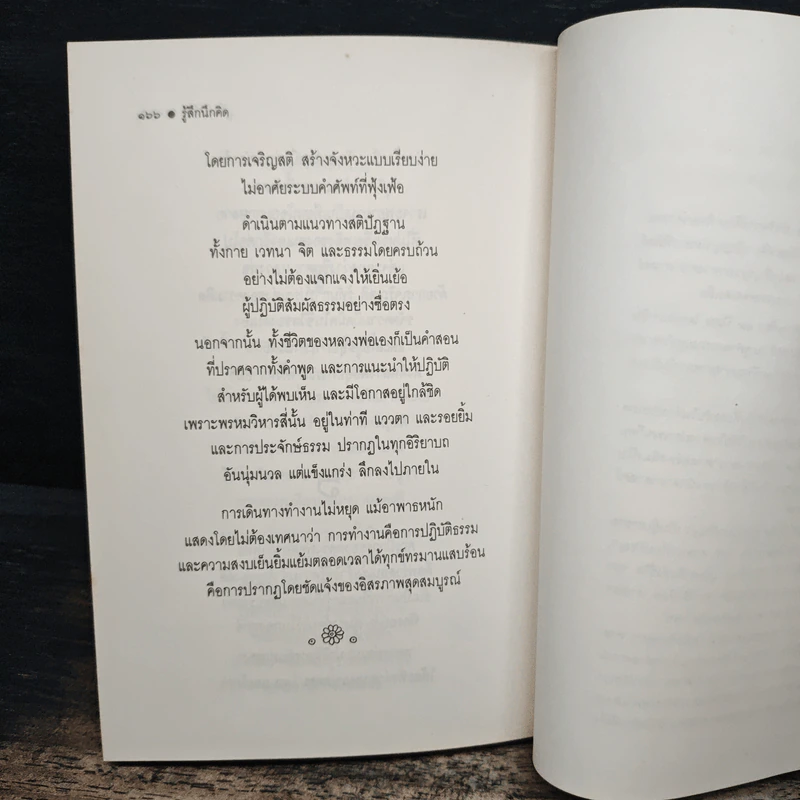 ๑๖๖ ● รู้สึกนึกคิด
โดยการเจริญสติ สร้างจังหวะแบบเรียบง่าย
ไม่อาศัยระบบคำศัพท์ที่ฟุ้งเฟ้อ
ดำเนินตามแนวทางสติปัฏฐาน
ทั้งกาย เวทนา จิต และธรรมโดยครบถ้วน
อย่างไม่ต้องแจกแจงให้เยิ่นเย้อ
ผู้ปฏิบัติสัมผัสธรรมอย่างซื่อตรง
นอกจากนั้น ทั้งชีวิตของหลวงพ่อเองก็เป็นคำสอน
ที่ปราศจากทั้งคำพูด และการแนะนำให้ปฏิบัติ
สำหรับผู้ได้พบเห็น และมีโอกาสอยู่ใกล้ชิด
เพราะพรหมวิหารสี่นั้น อยู่ในท่าที แววตา และรอยยิ้ม
และการประจักษ์ธรรม ปรากฏในทุกอิริยาบถ
อันนุ่มนวล แต่แข็งแกร่ง ลึกลงไปภายใน
การเดินทางทำงานไม่หยุด แม้อาพาธหนัก
แสดงโดยไม่ต้องเทศนาว่า การทำงานคือการปฏิบัติธรรม
และความสงบเย็นยิ้มแย้มตลอดเวลาได้ทุกข์ทรมานแสบร้อน
คือการปรากฏโดยชัดแจ้งของอิสรภาพสุดสมบูรณ์